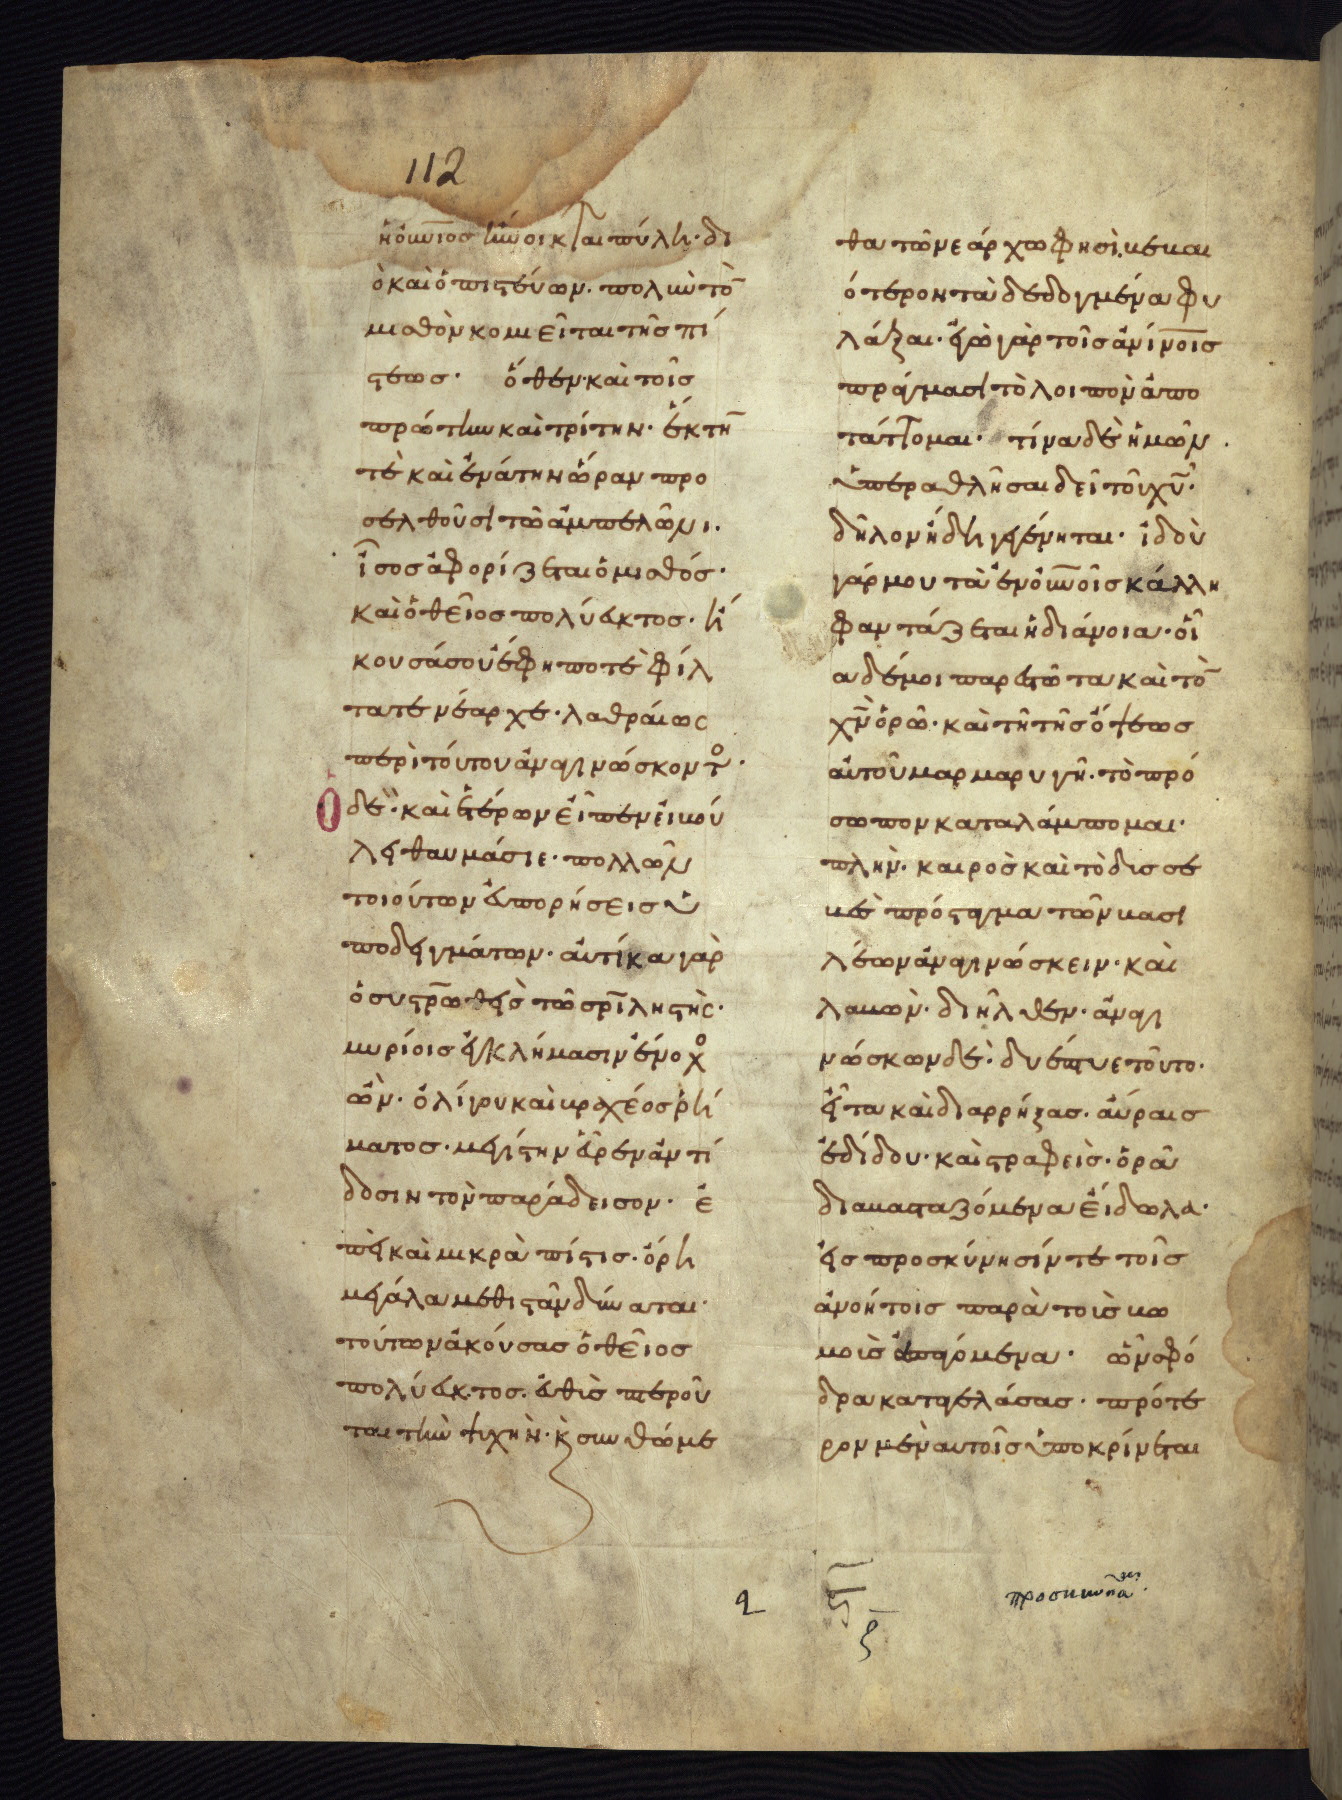 112
ἡ οὐ̅ν̅ιος ἠνοίκται πύλη· δι
ὸ καὶ ὁ πιστεύων. πολὺν τὸ̅
μισθὸν κομιεῖται τῆς πί
στεως· ὅθεν καὶ τοῖς
πρώτην καὶ τρίτην. ἕκτη̅
τὲ καὶ ἐνάτην ὥραν προ
σελθοῦσι τῶ ἀμπελῶνι.
ἶσος ἀφορίζεται ὁ μισθός·
καὶ ὁ θεῖος πολύευκτος. ἤ
κουσά σου ἔφη ποτὲ φίλ
τατε νέαρχε. λαθραίως
περὶ τούτου ἀναγινώσκοντο̅ς·
Ὁ δέ· καὶ ἑτέρων εἶπεν εἰ βού
λει θαυμάσιε. πολλῶν
τοιούτων εὐπορήσεις ὑ
ποδειγμάτων. αὐτίκα γὰρ
ὁ συσταυρωθεὶς τῶ σρι ληστής·
μυρίοις ἐγκλήμασιν ἔνοχο
ὤν. ὀλίγου καὶ βραχέος ῥή
ματος. μεγίστην εὗρεν ἀντί
δοσιν τὸν παράδεισον. ἐ
πεὶ καὶ μικρὰ πίστις. ὄρη
μεγάλα μεθιστᾶν δύναται·
τούτων ἀκούσας ὁ θεῖος
πολύευκτος. εὐθὺς πτεροῦ
ται τὴν ψυχήν. κ συνθώμε
θα τῶ νεάρχω φησί. βεβαι
ότερον τὰ δεδογμένα φυ
λάξαι. ἐγὼ γὰρ τοῖς ἀνίνοις
πράγμασι τὸ λοιπὸν ἀπο
τάττομαι. τίνα δὲ ἡμῶν
ὑπεραθλῆσαι δεῖ τοῦ χυ̅.
δῆλον ἤδη γεγένηται. ἰδοὺ
γάρ μου τὰ ἐν οὐ̅νοῖς κάλλη
φαντάζεται ἡ διάνοια. οἷ
α δέ μοι παρεστῶτα καὶ τὸ̅
χν̅ ὁρῶ. καὶ τῆ τῆς ὄψεως
αὐτοῦ μαρμαρυγῆ. τὸ πρό
σωπον καταλάμπομαι.
πλὴν. καιρὸς καὶ τὸ δυσσε
βὲς πρόσταγμα τῶν βασι
λέων ἀναγινώσκειν. καὶ
λαβών. διῆλθεν. ἀναγι
νώσκων δέ. διέπτυε τοῦτο.
εἶτα καὶ διαρρήξας. αὔραις
ἐδίδου. καὶ στραφεὶς. ὁρᾶ
διαβασταζόμενα εἴδωλα.
εἰς προσκύνησίν τε τοῖς
ἀνοήτοις παρὰ τοῖς βω
μοῖς ἀπαγόμενα. ὧν σφό
δρα καταγελάσας. πρότε
ρον μὲν αυτοῖς ὑποκρίνεται